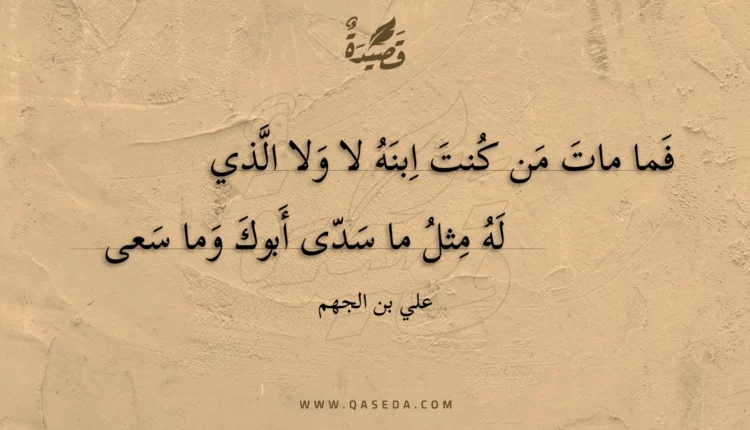 قَصِيدَةٌ
فَما ماتَ مَن كُنتَ اِبنَهُ لا وَلا الَّذي
لَهُ مِثلُ ما سَدّى أَبوكَ وَما سَعى
علي بن الجهم
WWW.QASEDA.COM